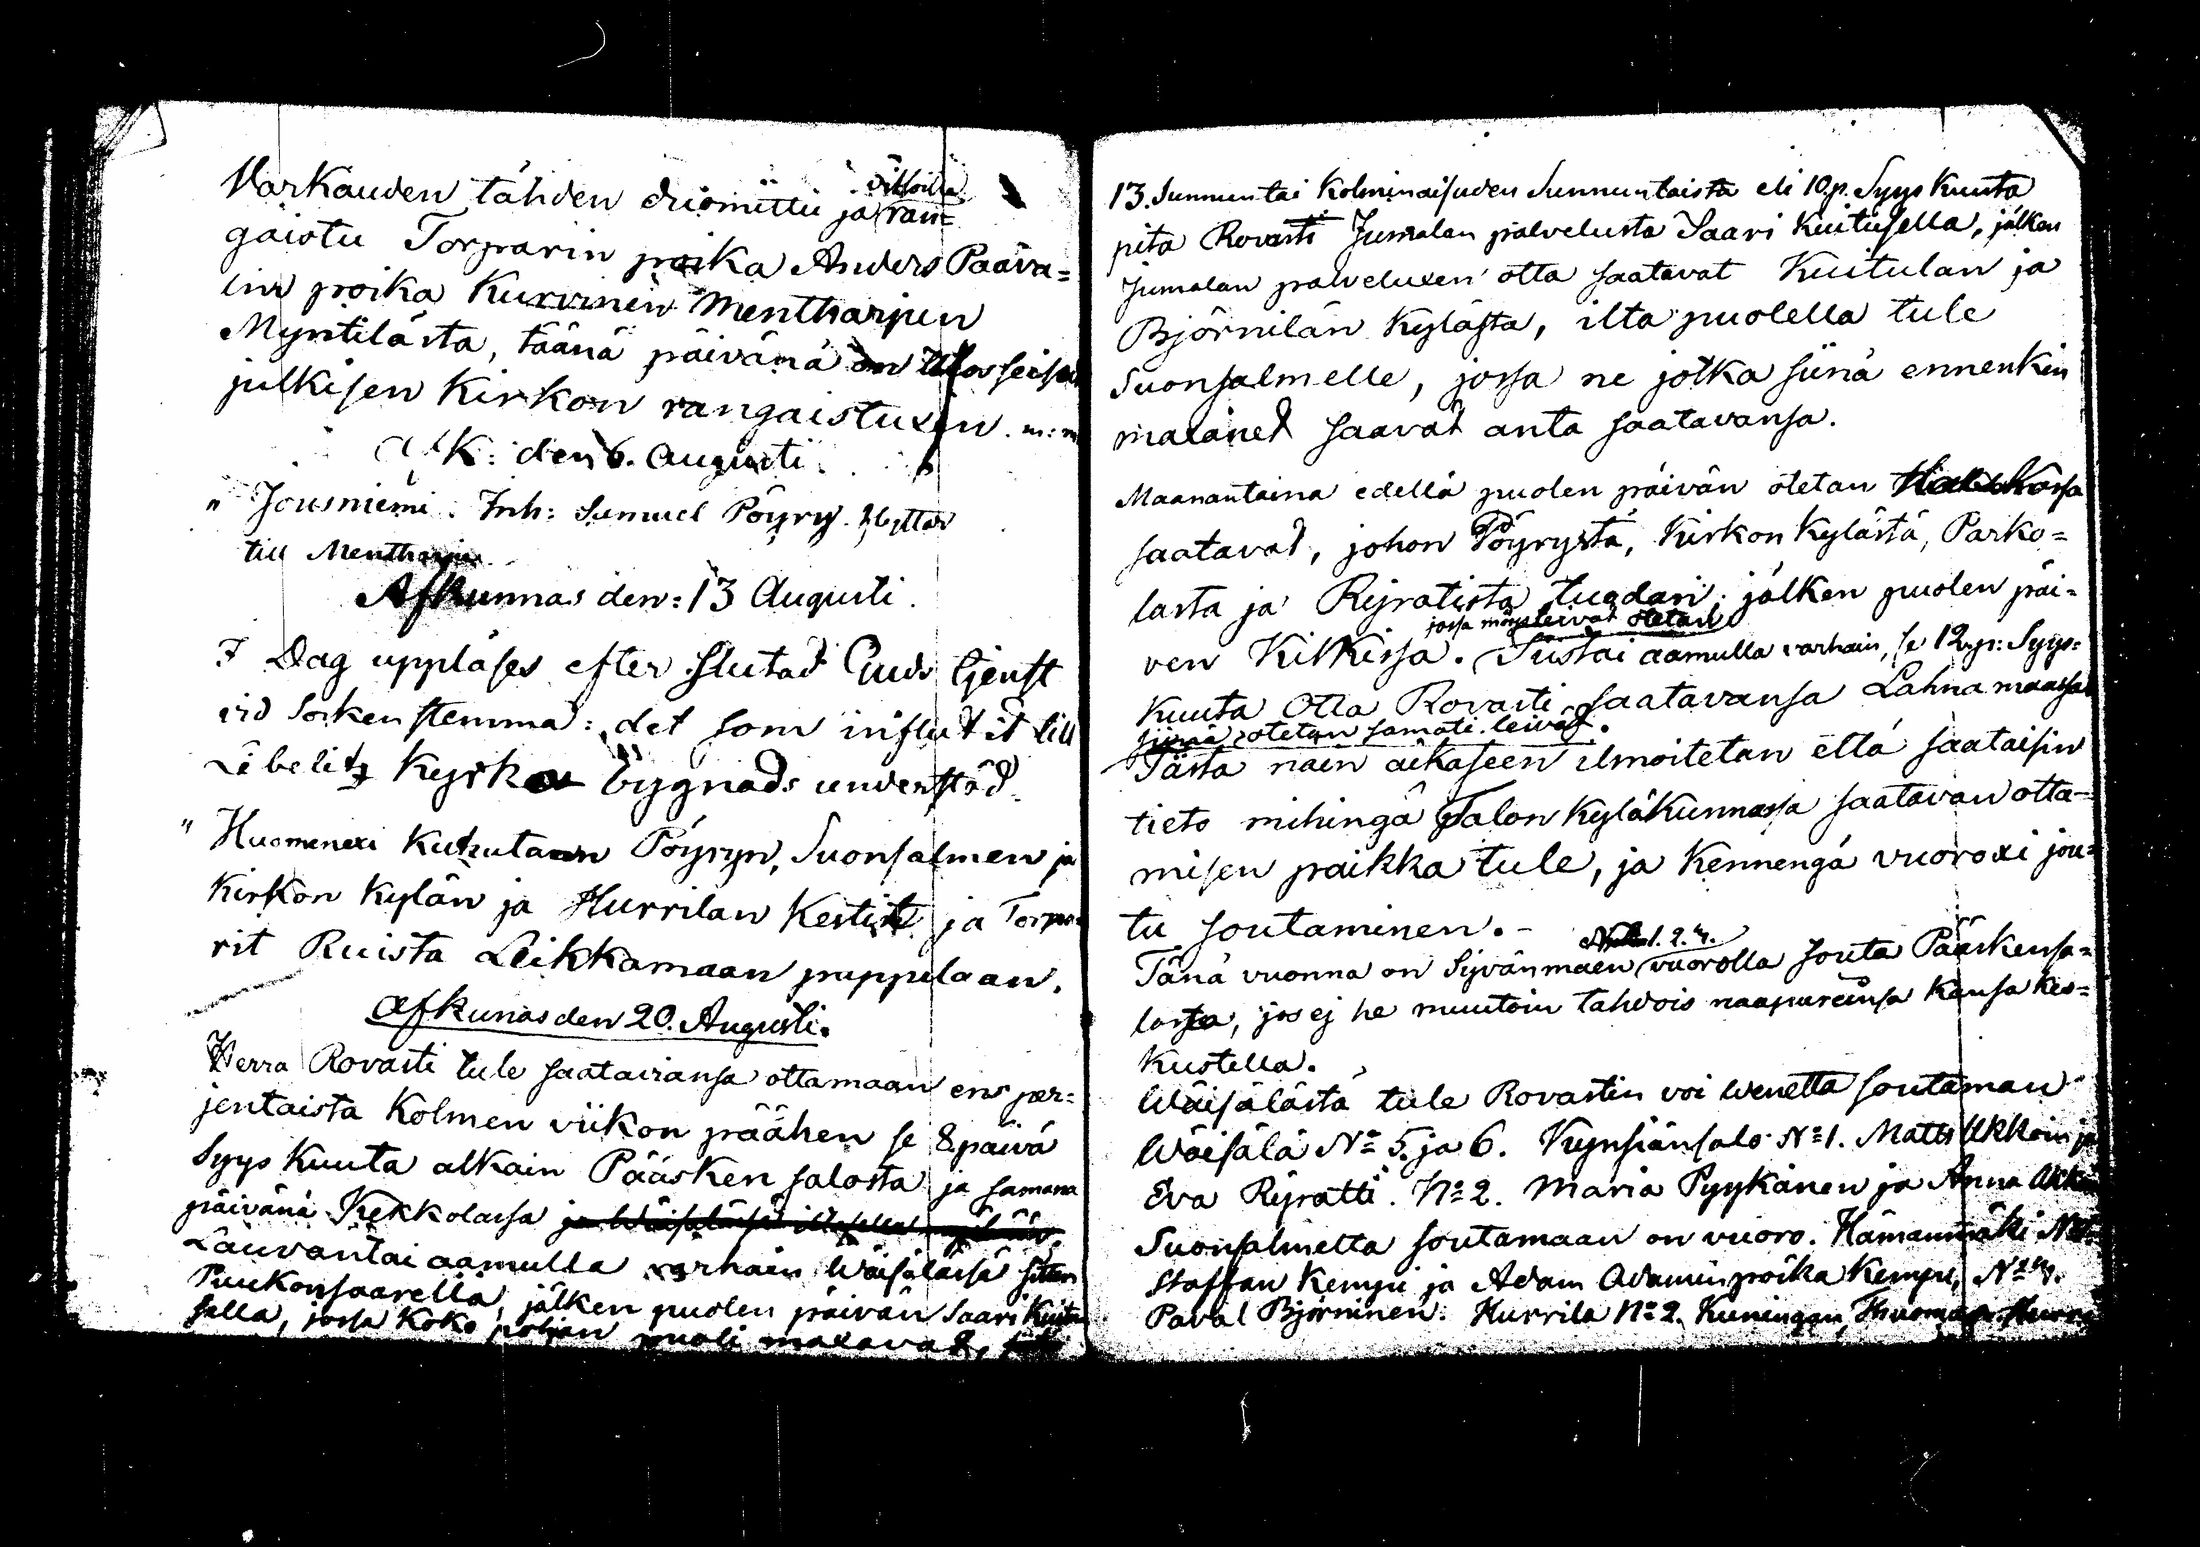 Varkauden tähden driomittu ja vitsoilla ran=
gaistu Torparin poika Anders Paava=
lin poika Kurvinen Mentharjun
Myntilästa, täänä päivänä on Ulosseisova
julkisen Kirkon rangaistuxen. m:m
Afk: den 6. Augusti.
" Jousniemi. Inh: Samuel Pöyry. flyttar
till Mentharju
Afkunnas den: 13 Augusti.
I Dag uppläses efter slutad Guds tjenst
vid Sockenstemma: det som influtit till
Libelitz Kyrko bygnads understöd.
" Huomenexi Kutzutaan Pöyryn, Suonsalmen ja
Kirkon Kylän ja Hurrilan Kestit ja Torpa=
rit Ruista Leikkamaan puppilaan.
Afkunas den 20. Augusti.
Herra Rovasti tule saataviansa ottamaan ens per=
jentaista Kolmen viikon päähen se 8 päivä
Syys Kuuta alkain Pääsken salosta ja samana
päivänä Kekkolassa ja Wäisälässä
Lauvantai aamulla varhain Wäisälässä sitten
Puukonsaarella, jälken puolen päivän Saari Kuitu
salla, jossa Koko pohjan puoli maxavat,
13. Sunnuntai Kolminaisuden Sunnuntaista eli 10.p. Syys Kuuta
pita Rovasti Jumalan palvelusta Saari Kuitusella, jälken
Jumalan palveluxen otta saatavat Kuitulan ja
Björnilän Kylästa, ilta puolella tule
Suonsalmelle, jossa ne jotka siinä ennenkin
maxanet saavat anta saatavansa.
Maanantaina edellä puolen päivän otetan
saatavat, johon Pöyrystä, Kirkon Kylästä, Parko=
lasta ja Rijratista tuodan. jälken puolen päi=
jossa myös leivat otetan
ven Kilkissa. Tiistai aamulla varhain, se 12.p: Syys=
Kuuta Otta Rovasti saatavansa Lahna maassa
siinä otetan samati leivät.
Tästa näin aikaseen ilmoitetan että saataisin
tieto mihingä Talon Kyläkunnassa saatavan otta=
misen paikka tule, ja Kennengä vuoroxi jou=
tu soutaminen. –
N:o 1. 2. 4.
Tänä vuonna on Syvänmaen vuorolla souta Pääskensa=
losta, jos ej he muutoin tahdois naapureinsa Kansa Kes=
kustella.
Wäisälästä tule Rovastin voi wenetta soutaman
Wäisälä N:o 5. ja 6. Kynsiänsalo N:o 1. Matts Ukkoin ja
Eva Rijratti. N:o 2. Maria Pyykänen ja Anna
Suonsalmetta soutamaan on vuoro. Hämanmäki
Staffan Kempi ja Adam Adamin poika Kempi, N:o 4.
Paval Björninen. Hurrila N:o 2. Kuningan,